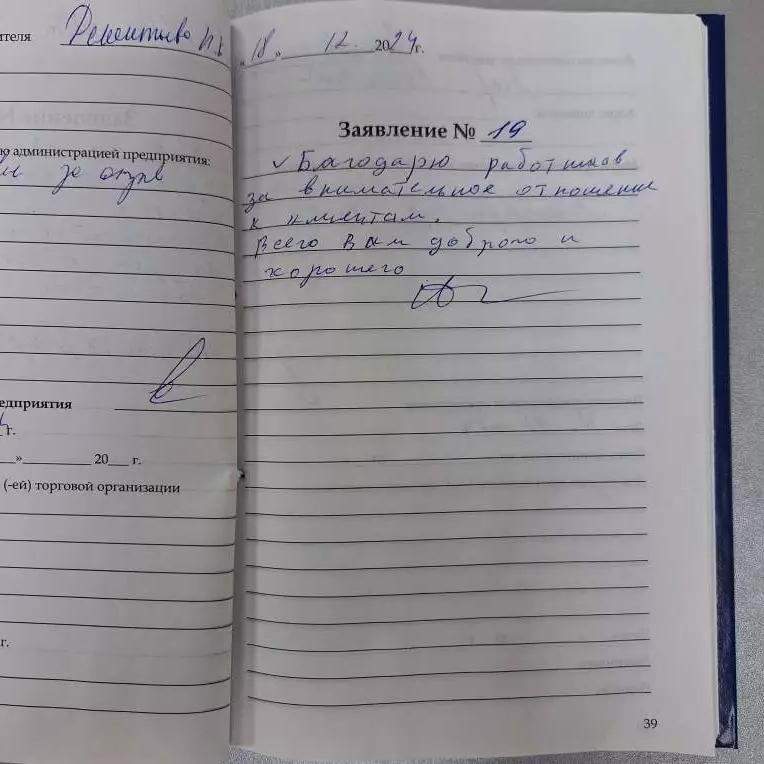 ителя
«18» 12. 2024г.
ю администрацией предприятия:
за отзыв
едприятия
г.
» 20 г.
(-ей) торговой организации
г.
Заявление № 19
Благодарю работников
за внимательное отношение
к клиентам.
Всего Вам доброго и
хорошего
39